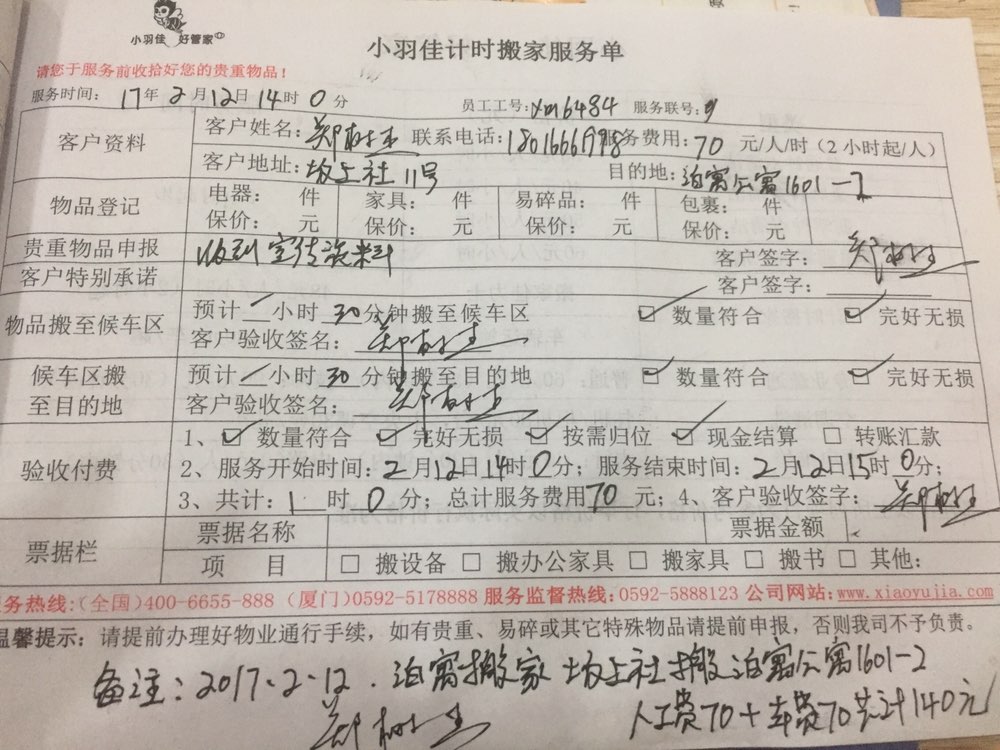 小羽佳 好管家
小羽佳计时搬家服务单
请您于服务前收拾好您的贵重物品！
服务时间：17年2月12日14时0分 员工工号：xm6484 服务联号：
客户资料 客户姓名：郑树生 联系电话： 服务费用：70 元/人/时（2小时起/人）
客户地址：坂上社11号 目的地：泊寓公寓1601-2
物品登记 电器： 件 家具： 件 易碎品： 件 包裹： 件
保价： 元 保价： 元 保价： 元 保价： 元
贵重物品申报 收到宣传资料 客户签字：郑树生
客户特别承诺 客户签字：
物品搬至候车区 预计/小时30分钟搬至候车区 ☑ 数量符合 ☑ 完好无损
客户验收签名：郑树生
候车区搬至目的地 预计/小时30分钟搬至目的地 ☑ 数量符合 ☑ 完好无损
客户验收签名：郑树生
验收付费 1、☑ 数量符合 ☑ 完好无损 ☑ 按需归位 ☑ 现金结算 □ 转账汇款
2、服务开始时间：2月12日14时0分；服务结束时间：2月12日15时0分；
3、共计：1时0分；总计服务费用70元；4、客户验收签字：郑树生
票据栏 票据名称 票据金额
项 目 □ 搬设备 □ 搬办公家具 □ 搬家具 □ 搬书 □ 其他：
务热线：（全国）400-6655-888（厦门）0592-5178888 服务监督热线：0592-5888123 公司网站：www.xiaoyujia.com
温馨提示：请提前办理好物业通行手续，如有贵重、易碎或其它特殊物品请提前申报，否则我司不予负责。
备注：2017.2.12.泊寓搬家 坂上社搬泊寓公寓1601-2
郑树生 人工费70+车费70共计140元